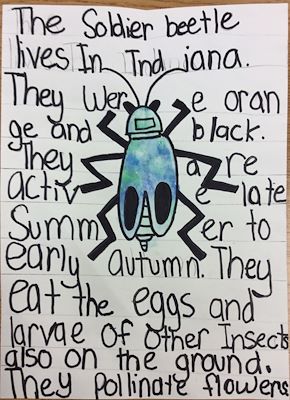 The Soldier beetle
lives In Indiana.
They Were oran
ge and black.
They are
active late
Summer to
early autumn. They
eat the eggs and
larvae of Other Insects
also on the ground.
They Pollinate flowers